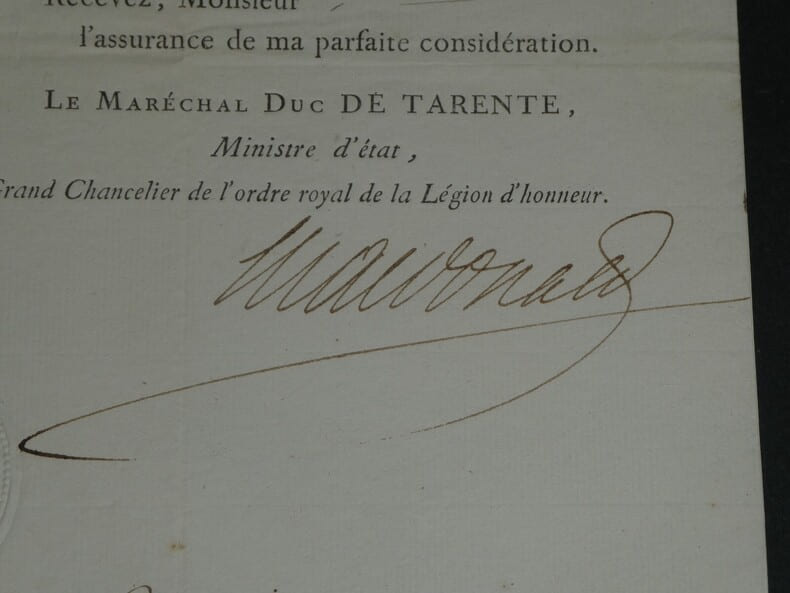 Recevez, Monsieur
l'assurance de ma parfaite considération.
Le Maréchal Duc DE TARENTE,
Ministre d'état,
Grand Chancelier de l'ordre royal de la Légion d'honneur.
Macdonald